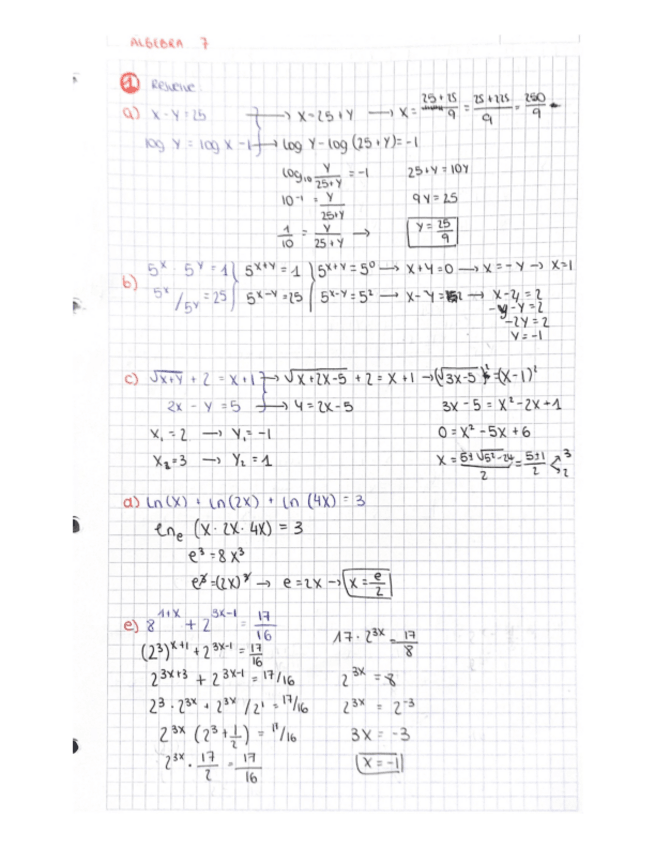 ALGEBRA 7
1 Resuelve
a) x - y = 25 → x = 25 + y → x = 25 + 25/9 = 25 + 225/9 = 250/9
log y = log x - 1 → log y - log (25 + y) = -1
log₁₀ y/25+y = -1 25 + y = 10y
10⁻¹ = y/25+y 9y = 25
1/10 = y/25+y → y = 25/9
b) 5ˣ · 5ʸ = 1 } 5ˣ⁺ʸ = 1 } 5ˣ⁺ʸ = 5⁰ → x + y = 0 → x = -y → x = 1
5ˣ / 5ʸ = 25 } 5ˣ⁻ʸ = 25 } 5ˣ⁻ʸ = 5² → x - y = 2 → x - y = 2
-y - y = 2
-2y = 2
y = -1
c) √x+y + 2 = x + 1 → √x+2x-5 + 2 = x + 1 → (√3x-5)² = (x-1)²
2x - y = 5 → y = 2x - 5 3x - 5 = x² - 2x + 1
x₁ = 2 → y₁ = -1 0 = x² - 5x + 6
x₂ = 3 → y₂ = 1 x = 5±√5²-24/2 = 5±1/2 < 3 2
d) ln(x) + ln(2x) + ln (4x) = 3
lnₑ (x · 2x · 4x) = 3
e³ = 8x³
e³ = (2x)³ → e = 2x → x = e/2
e) 8¹⁺ˣ + 2³ˣ⁻¹ = 17/16 17 · 2³ˣ = 17/8
(2³)ˣ⁺¹ + 2³ˣ⁻¹ = 17/16
2³ˣ⁺³ + 2³ˣ⁻¹ = 17/16 2³ˣ = 8
2³ · 2³ˣ + 2³ˣ / 2¹ = 17/16 2³ˣ = 2⁻³
2³ˣ (2³ + 1/2) = 17/16 3x = -3
2³ˣ · 17/2 = 17/16 x = -1